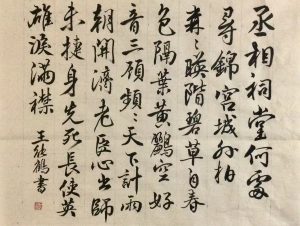 丞相祠堂何處
尋錦宮城外柏
森々暎階碧草自春
色隔葉黃鸝空好
音三顧頻々天下計兩
朝開濟老臣心出師
未捷身先死長使英
雄淚滿襟
王鶴書